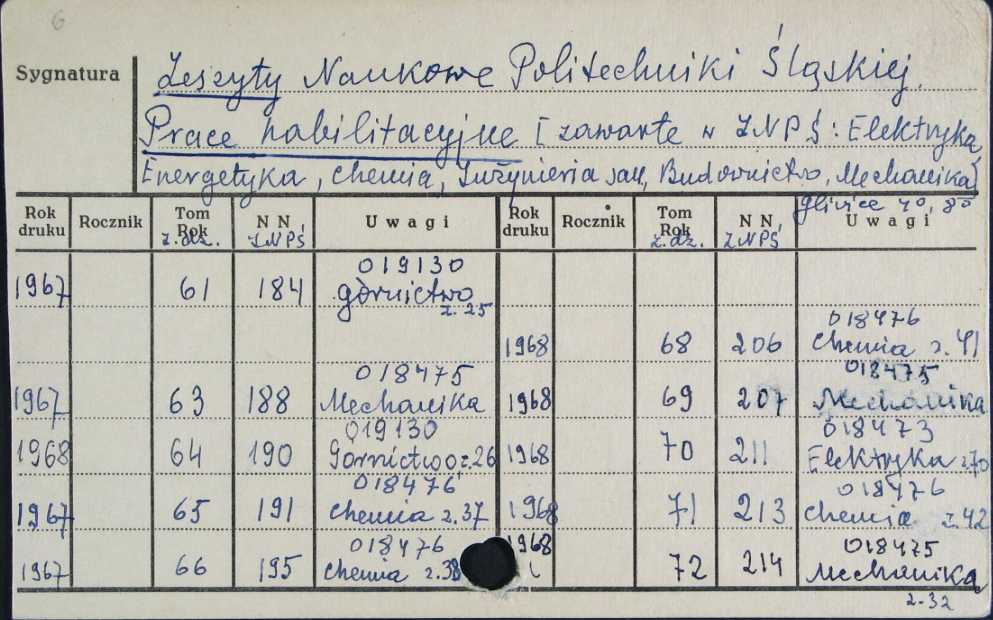 6
Sygnatura
Zeszyty Naukowe Politechniki Śląskiej.
Prace habilitacyjne [zawarte w ZNPŚ: Elektryka,
Energetyka, Chemia, Inżynieria san, Budownictwo, Mechanika]
Gliwice 4°, 8°
Rok druku Rocznik Tom Rok z. dz. N N ZNPŚ Uwagi Rok druku Rocznik Tom Rok z. dz. N N ZNPŚ Uwagi
1967 61 184 019130 górnictwo z. 25
1968 68 206 018476 Chemia z. 41
1967 63 188 018475 Mechanika 1968 69 207 018475 Mechanika
1968 64 190 019130 Górnictwo z. 26 1968 70 211 018473 Elektryka z. 70
1967 65 191 018476 chemia z. 37 1968 71 213 018476 Chemia z. 42
1967 66 195 018476 chemia z. 1968 72 214 018475 Mechanika
z-32